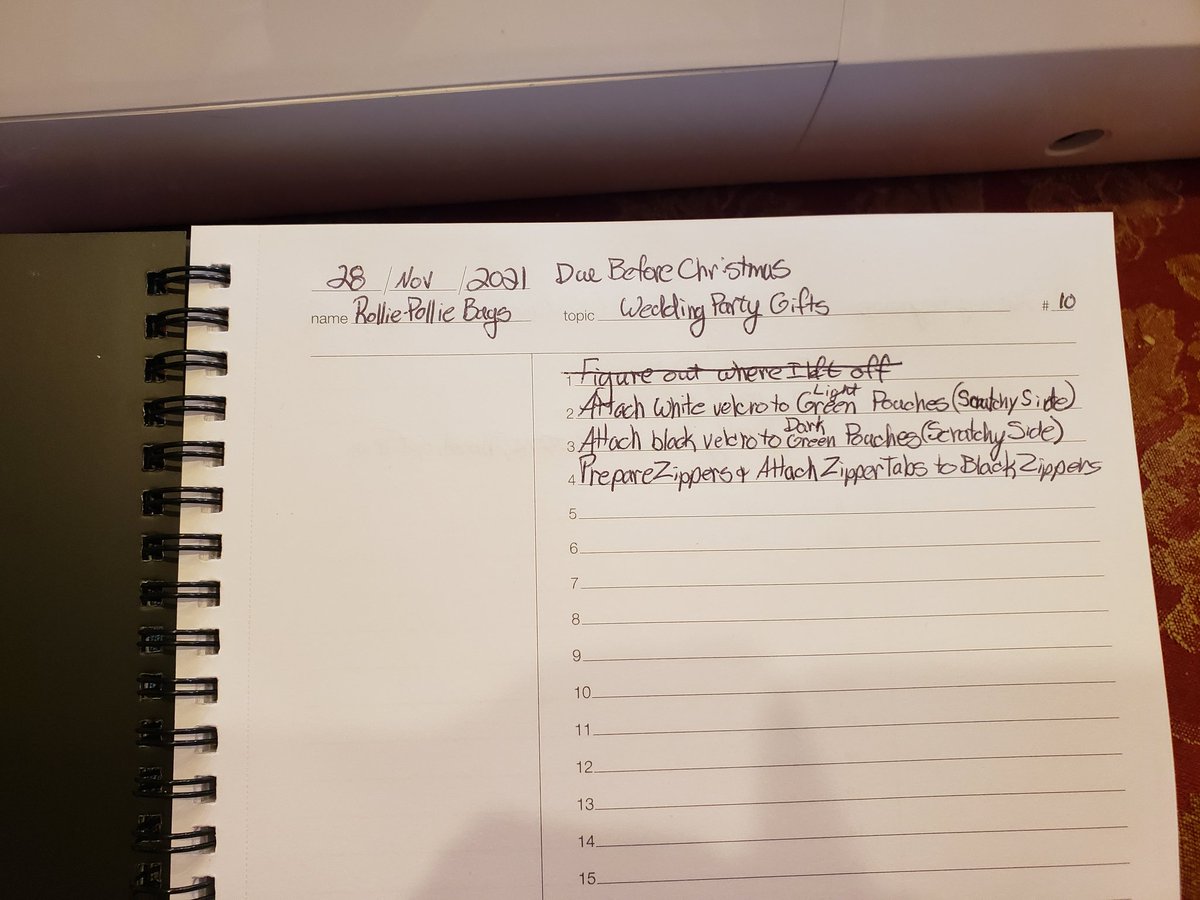 28 / Nov / 2021 Due Before Christmas
name Rollie-Pollie Bags topic Wedding Party Gifts # 10
1 Figure out where I left off
2 Attach white velcro to Light Green Pouches (Scratchy Side)
3 Attach black velcro to Dark Green Pouches (Scratchy Side)
4 Prepare Zippers & Attach Zipper Tabs to Black Zippers
5
6
7
8
9
10
11
12
13
14
15